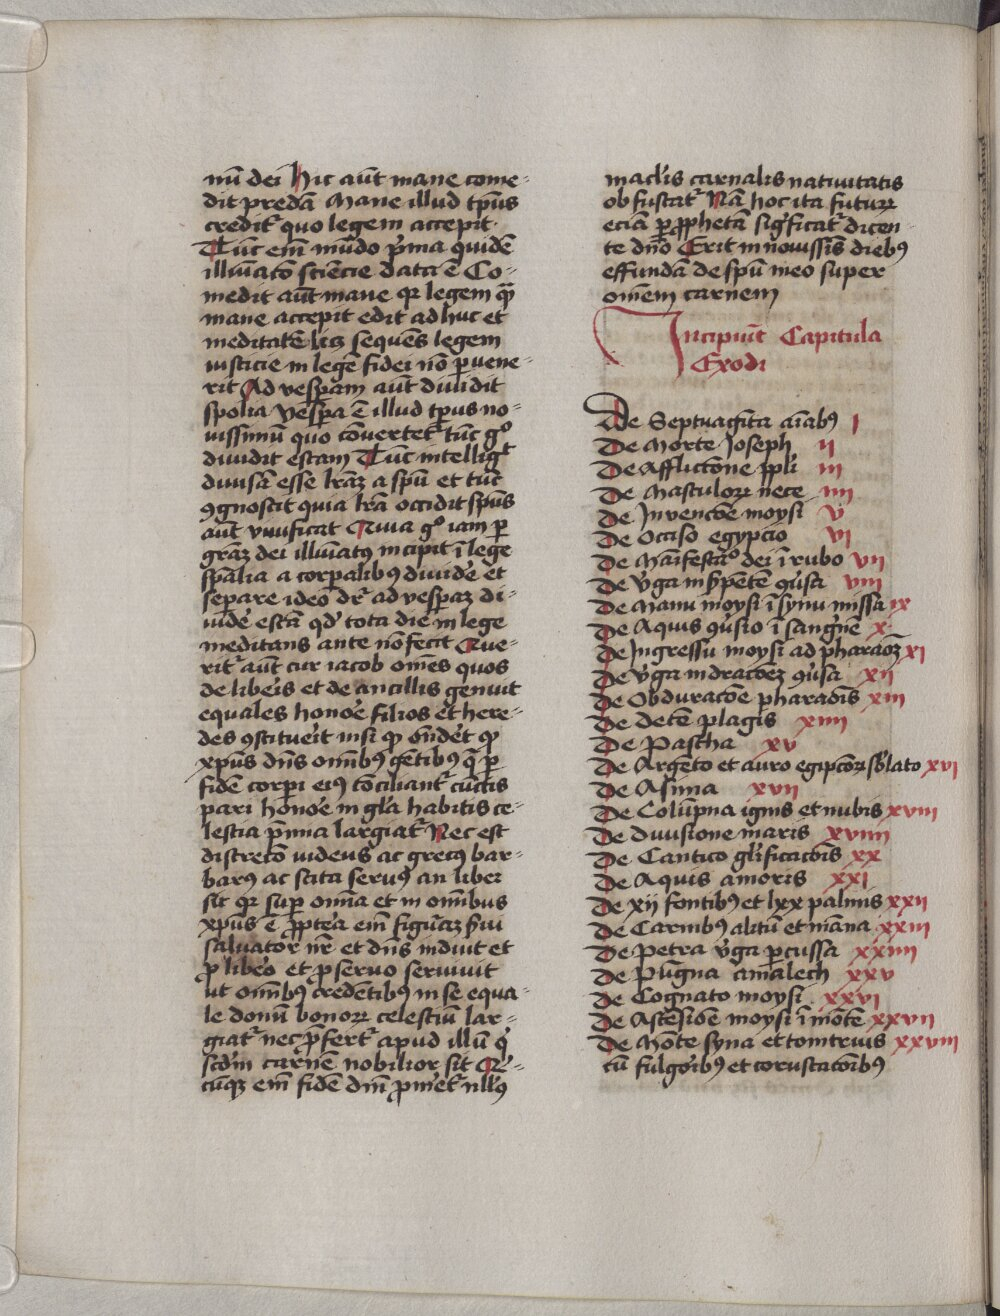 nū dei Hic aūt mane come-
dit predā Mane illud tp̄us
credit᷑ quo legem accepit
Tūc em̄ mūdo p̄ma quidē
illūiatō sciēcie data ē Co-
medit aūt mane qꝛ legem quā
mane accepit edit ad huc et
meditatē licꝫ sequēs legem
iusticie in legē fidei nō ꝑuene-
rit Ad vesperam aūt diuidit
spolia vesp̄a ē illud tp̄us no-
uissimū quo cōuertet᷑ tūc gͦ
diuidit escam Tūc intelligt
diuisā esse lrāꝫ a spū et tūc
ꝯgnoscit quia lrā occidit spūs
aūt viuificat Quia gͦ iam ꝑ
grāꝫ dei illūiatꝰ incipit ī lege
sp̄alia a corꝑalibꝰ diuidē et
seꝑare ideo dr̄ ad vesperaꝫ di-
uidē escā qd̓ tota die in lege
meditans ante nō fecit Que-
rit᷑ aūt cur iacob om̄es quos
de libēis et de ancillis genuit
equales honoē filios et here-
des ꝯstitueīt nisi qꝛ ōndet᷑ qꝛ
xp̄us dn̄s om̄ibꝰ gētibꝰ q̄ ꝑ
fidē corꝑi eiꝰ cōciliant᷑ cūctis
pari honoē in gl̄a habitis ce-
lestia p̄mia largiat᷑ Nec est
discretō iudeus ac grecꝰ bar-
barꝰ ac scita seruꝰ an liber
sit qꝛ suꝑ om̄ia et in om̄ibus
xp̄us ē ꝓpt̄ea em̄ figuraꝫ s̄ui
saluator nr̄ et dn̄s induit et
ꝓ libēo et ꝓ seruo seruiuit
ut om̄ibꝰ credētibꝰ in se equa-
le donū bonoꝝ celestiū lar-
giat᷑ nec p̄fert᷑ apud illū qͥ
scd̄m carnē nobilior sit Qͥ-
cūqꝫ em̄ fidē dn̄i ꝓmet᷑ nllꝰs
mac̄lis carnalis natiuitatis
obfuscat᷑ Nā hoc ita futuꝝ
eciā ꝑ ꝓphetā sigͥficat᷑ dicen-
te dn̄o Erit in nouissīs diebꝰ
effundā de spū meo super
om̄em carnem
Incipiūt Capitula
Exodi
De Septuagīta aīabꝰ I
De Morte Joseph II
De Afflictōne ppli III
De Masculoꝝ nece IIII
De Invencōe moysi V
De Occiso egypcio VI
De Māifestatōe dei ī rubo VII
De v̄ga in s̄pētē ꝯūsa VIII
De Manu moysi ī synu missa IX
De Aquis ꝯūsio ī sangͥnē X
De Ingressu moysi ad pharaōꝫ XI
De v̄ga in dracōeꝫ ꝯūsa XII
De Obduracōe pharaōis XIII
De decē plagis XIIII
De Pascha XV
De Argēto et auro egipcioꝝ s̄blato XVI
De Asima XVII
De Colūpna ignis et nubis XVIII
De diuisione maris XVIIII
De Cantico gl̄ificacōis XX
De Aquis amoris XXI
De xij fontibꝰ et lxx palmis XXII
De Carnibꝰ alitū et māna XXIII
De Petra v̄ga ꝑcussa XXIIII
De Pūgna amalech XXV
De Cognato moysi XXVI
De Ascēsiōe moysi ī mōtē XXVII
De Mōte syna et tonitruis XXVIII
cū fulgoībꝰ et coruscacōibꝰ